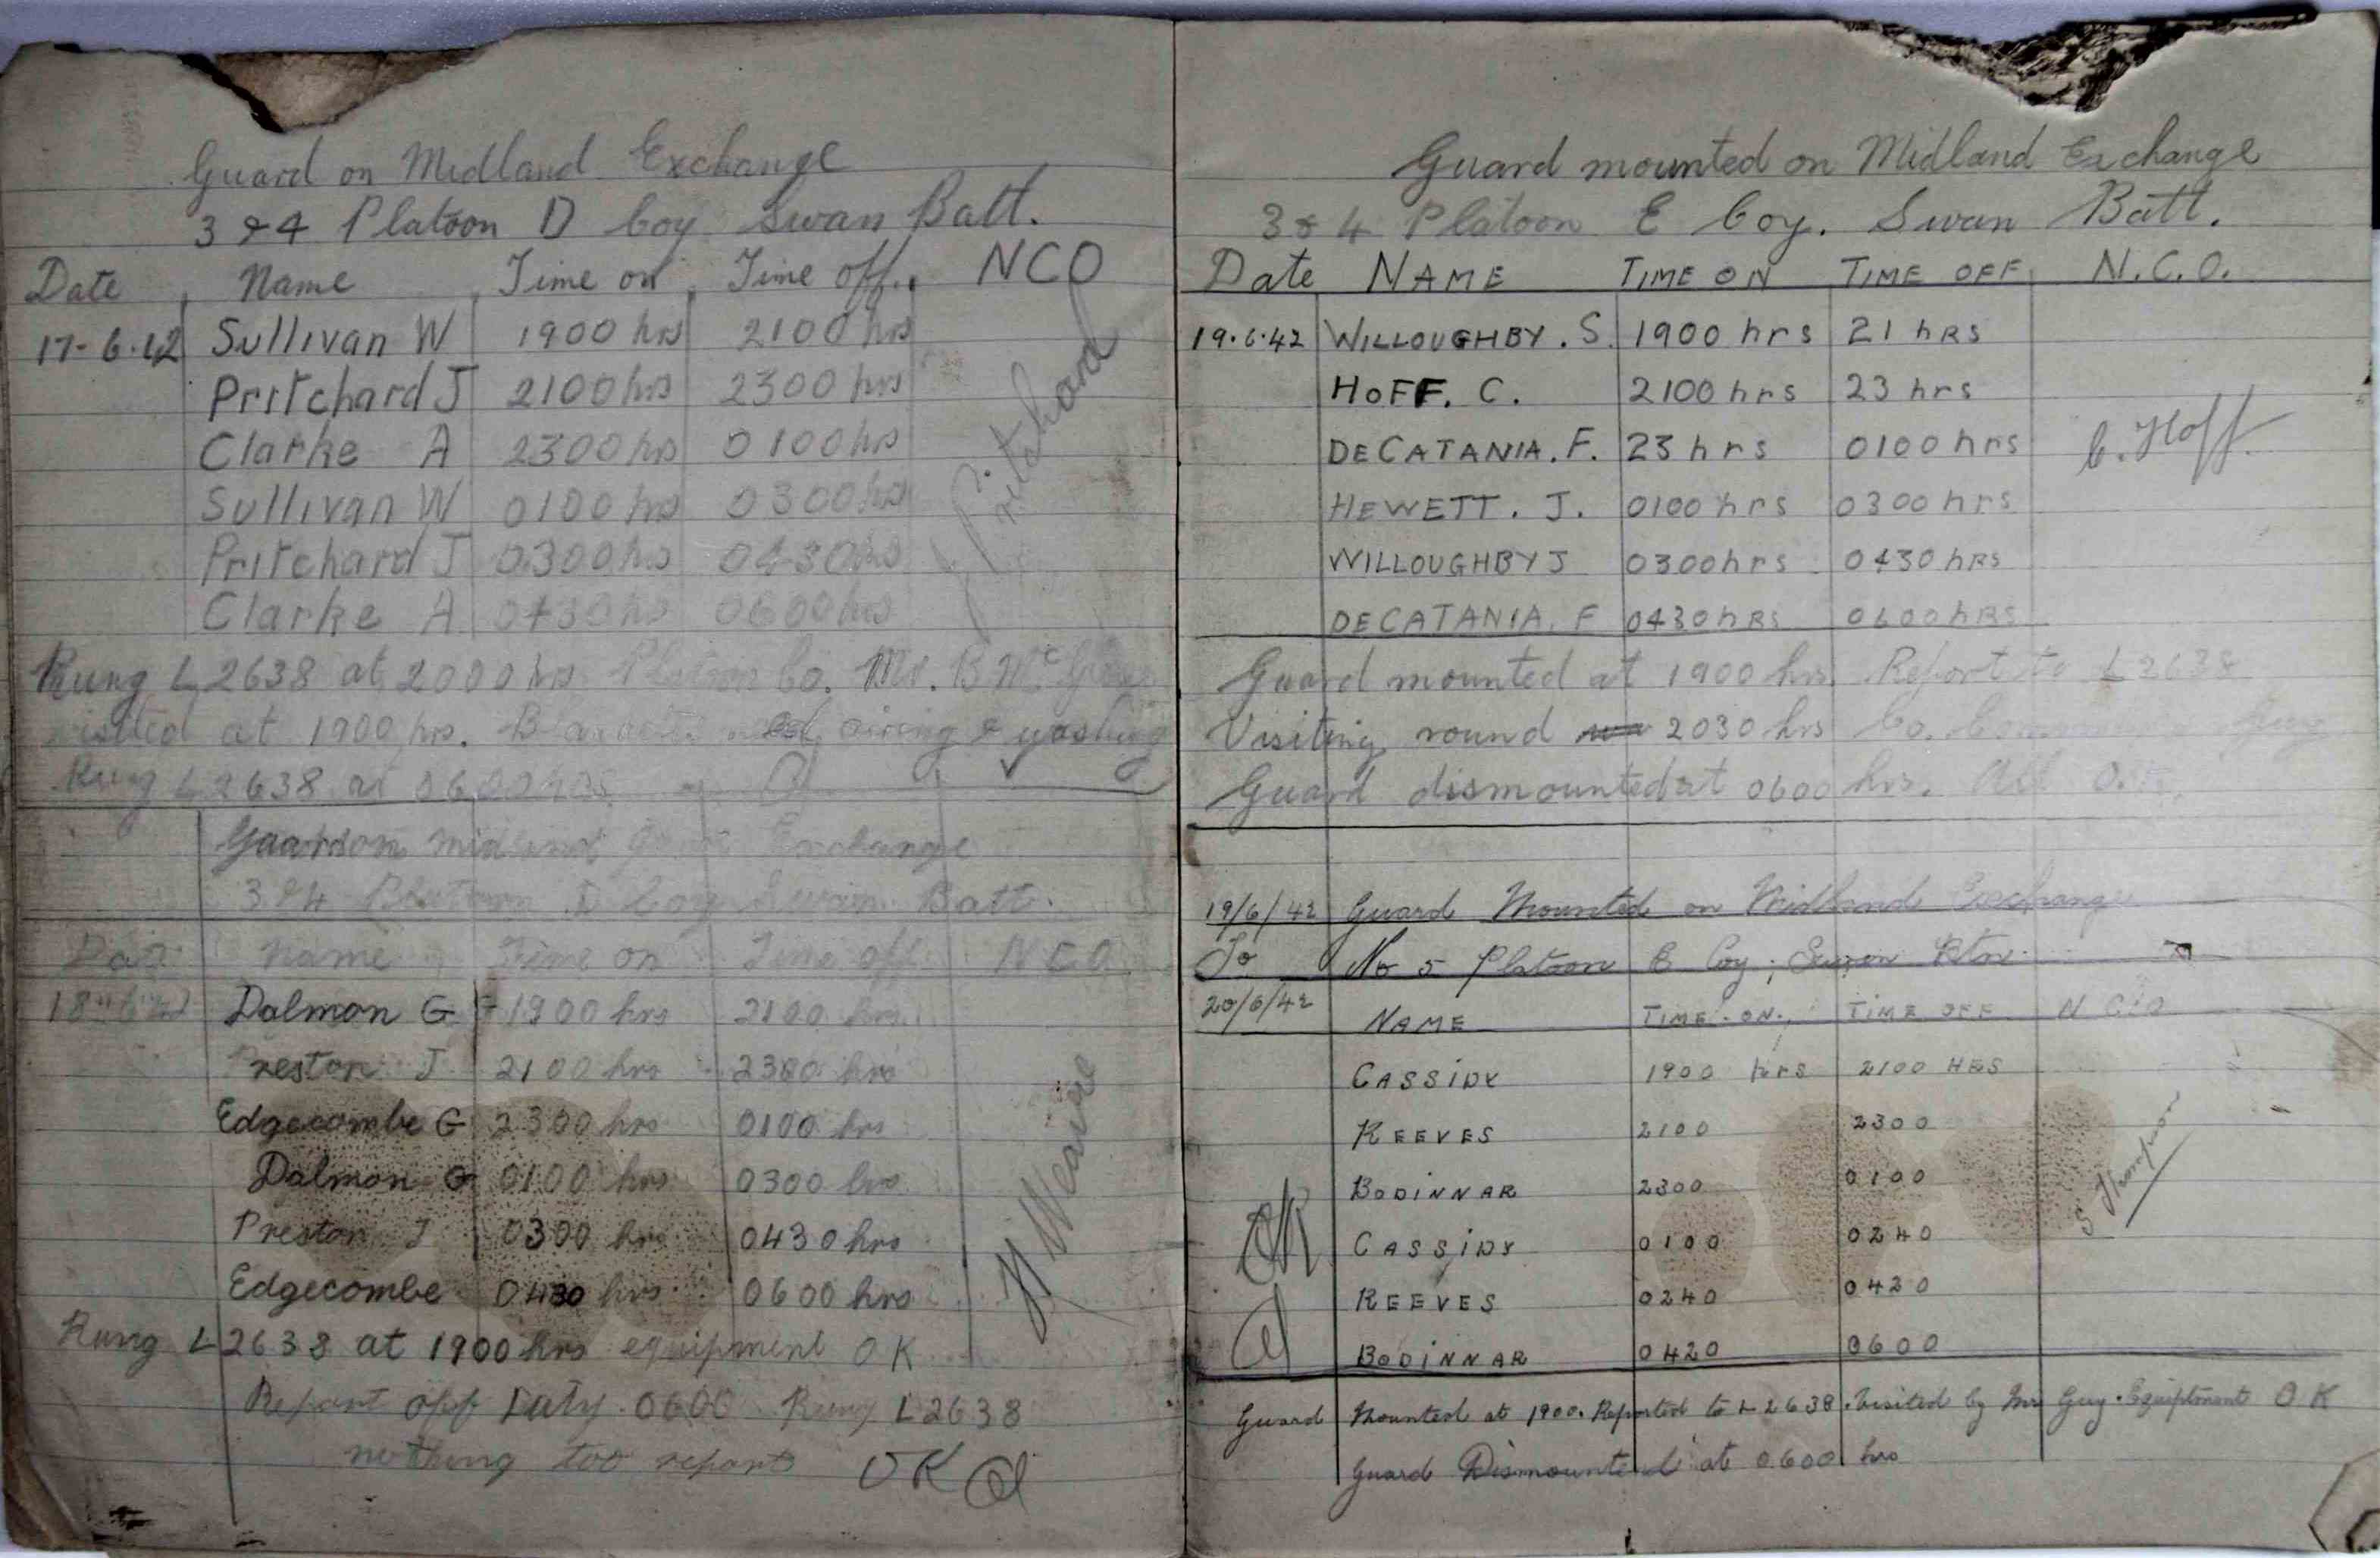 Guard on Midland Exchange
3 & 4 Platoon D Coy Swan Batt.
Date Name Time on Time off. NCO
17-6-42 Sullivan W 1900 hrs 2100 hrs
Pritchard J 2100 hrs 2300 hrs
Clarke A 2300 hrs 0100 hrs
J Pritchard
Sullivan W 0100 hrs 0300 hrs
Pritchard J 0300 hrs 0430 hrs
Clarke A 0430 hrs 0600 hrs
Rung L2638 at 2000 hrs Platoon Co. Mr. B Mc
visited at 1900 hrs. Blankets need airing & washing
Rung L2638 at 0600 hrs
Guard on Midland Exchange
3 & 4 Platoon D Coy Swan Batt.
Date Name Time on Time off NCO
18-6-42 Dalmon G 1900 hrs 2100 hrs
Preston J 2100 hrs 2300 hrs
Edgecombe G 2300 hrs 0100 hrs
Dalmon G 0100 hrs 0300 hrs
Preston J 0300 hrs 0430 hrs
Edgecombe 0430 hrs 0600 hrs
Rung L2638 at 1900 hrs equipment OK
Report off Duty 0600 Rung L2638
nothing too report OK
Guard mounted on Midland Exchange
3 & 4 Platoon E Coy. Swan Batt.
Date NAME TIME ON TIME OFF N.C.O.
19.6.42 WILLOUGHBY. S. 1900 hrs 21 hRS
HOFF. C. 2100 hrs 23 hrs
DECATANIA. F. 23 hrs 0100 hrs C. Hoff.
HEWETT. J. 0100 hrs 0300 hrs
WILLOUGHBY J 0300 hrs 0430 hRS
DECATANIA. F 0430 hRS 0600 hRS
Guard mounted at 1900 hrs. Report to L2638
Visiting round 2030 hrs Co. Guy
Guard dismounted at 0600 hrs. All O.K.
19/6/42 Guard Mounted on Midland Exchange
To No 5 Platoon E Coy; Swan Btn.
20/6/42 NAME TIME. ON. TIME OFF N C O
CASSIDY 1900 hrs 2100 HRS
REEVES 2100 2300
BODINNAR 2300 0100
S Thompson
OK CASSIDY 0100 0240
REEVES 0240 0420
BODINNAR 0420 0600
Guard Mounted at 1900. Reported to L2638. Visited by Mr Guy. Equiptment OK
Guard Dismounted at 0600 hrs